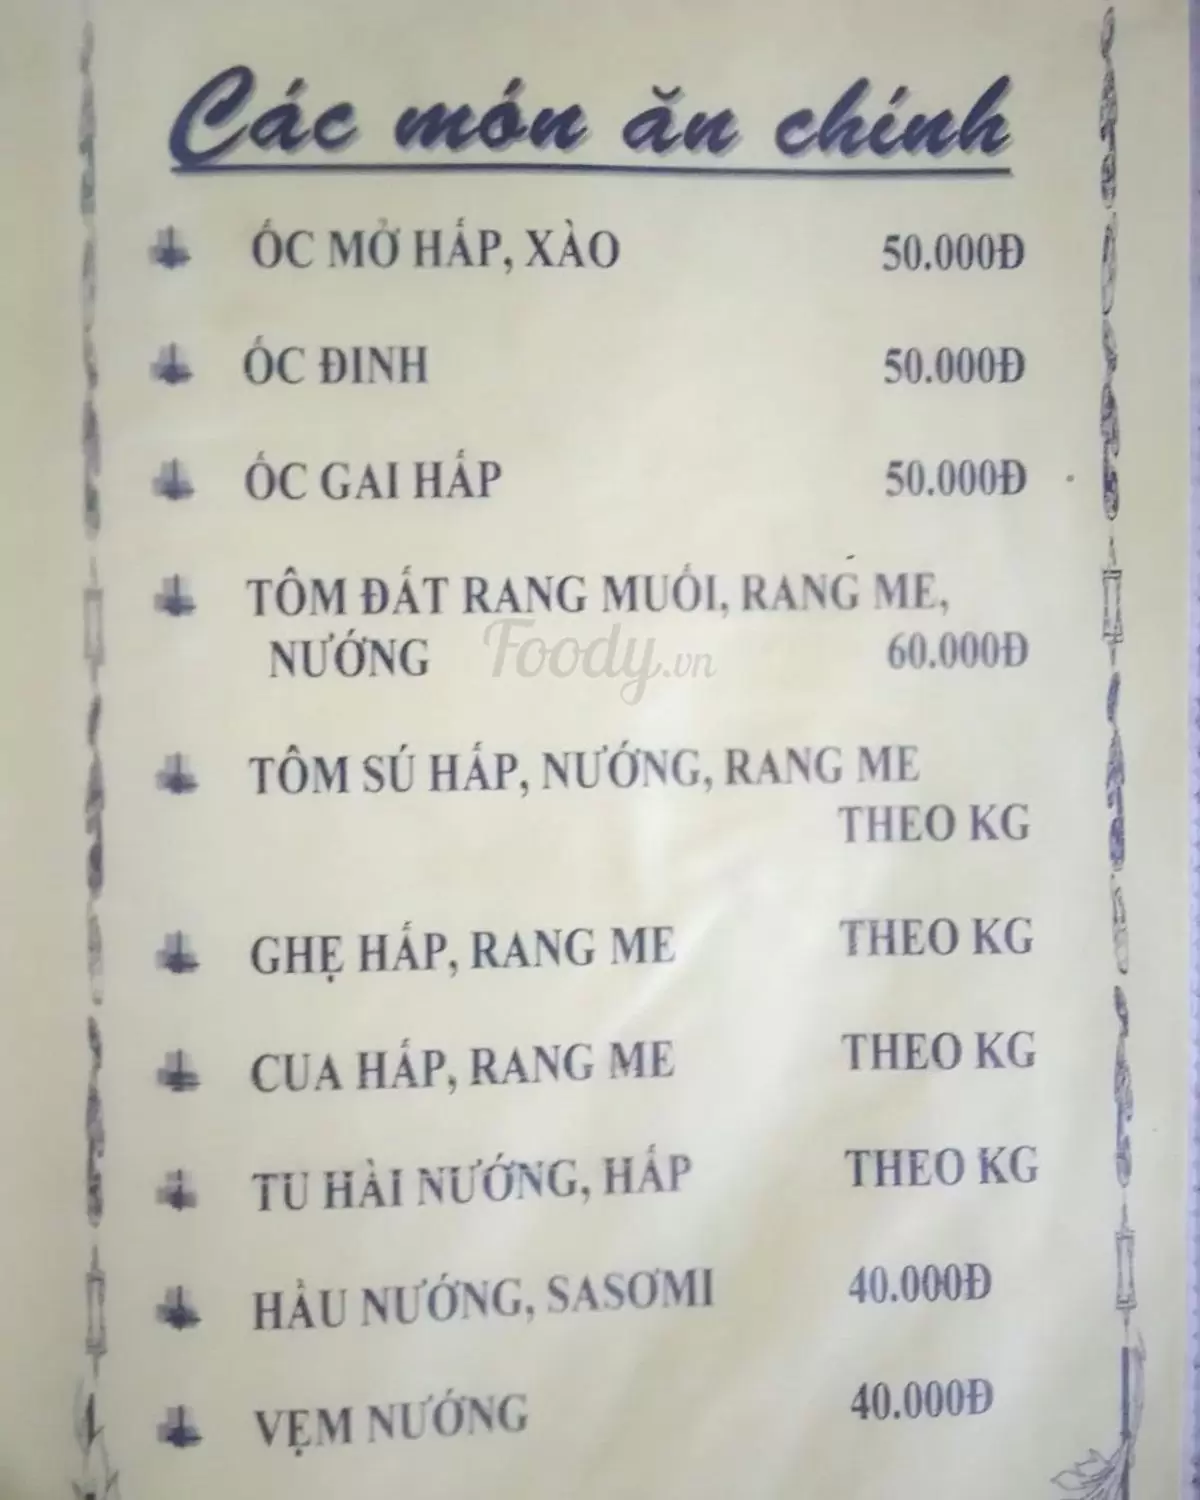 Các món ăn chính
ỐC MỞ HẤP, XÀO 50.000Đ
ỐC ĐINH 50.000Đ
ỐC GAI HẤP 50.000Đ
TÔM ĐẤT RANG MUỐI, RANG ME,
NƯỚNG 60.000Đ
Foody.vn
TÔM SÚ HẤP, NƯỚNG, RANG ME
THEO KG
GHẸ HẤP, RANG ME THEO KG
CUA HẤP, RANG ME THEO KG
TU HÀI NƯỚNG, HẤP THEO KG
HẦU NƯỚNG, SASƠMI 40.000Đ
VẸM NƯỚNG 40.000Đ